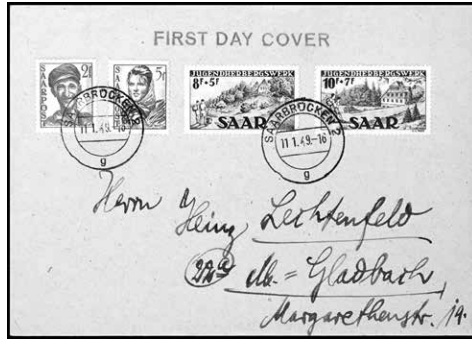 FIRST DAY COVER
2f
SAARPOST
5f
SAARPOST
JUGENDHERBERGSWERK
8f+5f
SAAR
JUGENDHERBERGSWERK
10f+7f
SAAR
SAARBRÜCKEN 2
11.1.49.-16
g
SAARBRÜCKEN 2
11.1.49.-16
g
Herrn
Heinz Lechtenfeld
22a
M.=Gladbach
Margarethenstr. 19.